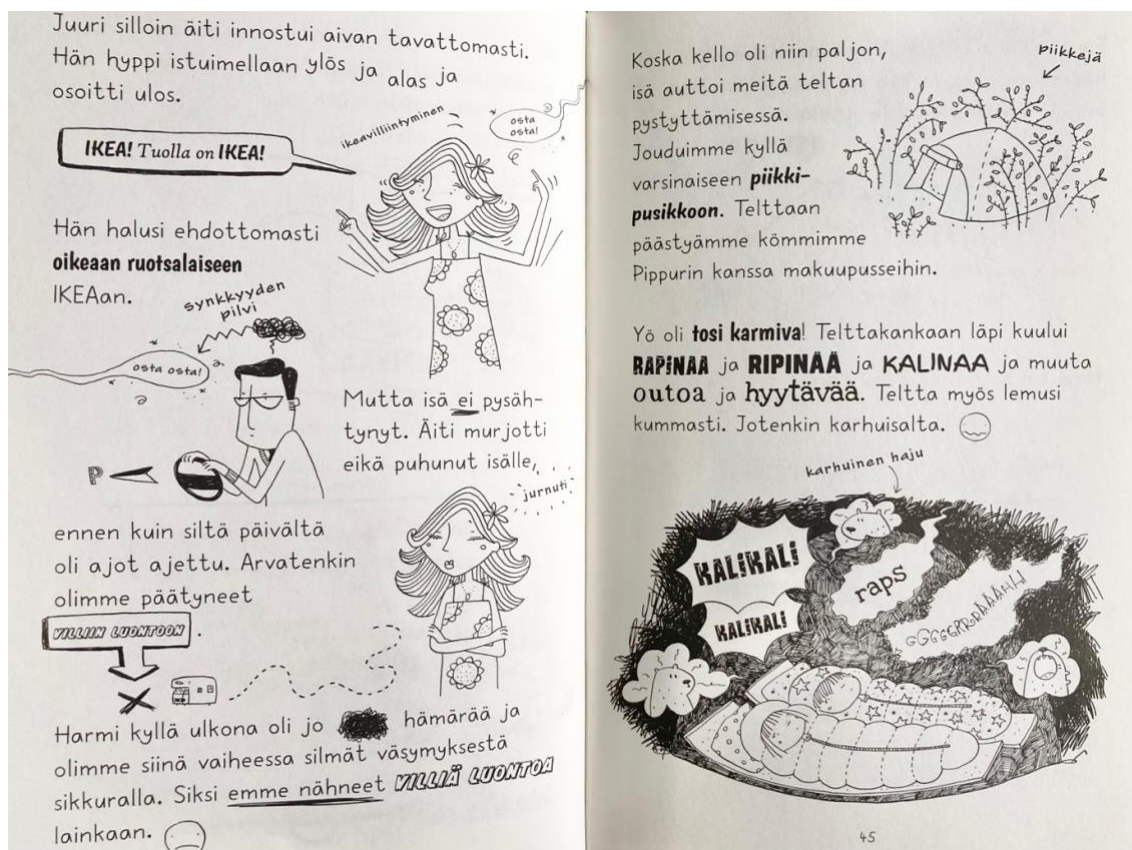 Juuri silloin äiti innostui aivan tavattomasti.
Hän hyppi istuimellaan ylös ja alas ja
osoitti ulos.
ikeavilliintyminen
osta
osta!
IKEA! Tuolla on IKEA!
Hän halusi ehdottomasti
oikeaan ruotsalaiseen
IKEAan.
synkkyyden
pilvi
osta osta!
P
Mutta isä ei pysäh-
tynyt. Äiti murjotti
eikä puhunut isälle,
jurnuti
ennen kuin siltä päivältä
oli ajot ajettu. Arvatenkin
olimme päätyneet
VILLIIN LUONTOON.
Harmi kyllä ulkona oli jo hämärää ja
olimme siinä vaiheessa silmät väsymyksestä
sikkuralla. Siksi emme nähneet VILLIÄ LUONTOA
lainkaan.
Koska kello oli niin paljon,
isä auttoi meitä teltan
pystyttämisessä.
Jouduimme kyllä
varsinaiseen piikki-
pusikkoon. Telttaan
päästyämme kömmimme
Pippurin kanssa makuupusseihin.
piikkejä
Yö oli tosi karmiva! Telttakankaan läpi kuului
RAPINAA ja RIPINÄÄ ja KALINAA ja muuta
outoa ja hyytävää. Teltta myös lemusi
kummasti. Jotenkin karhuisalta.
karhuinen haju
KALIKALI
KALIKALI
raps
45